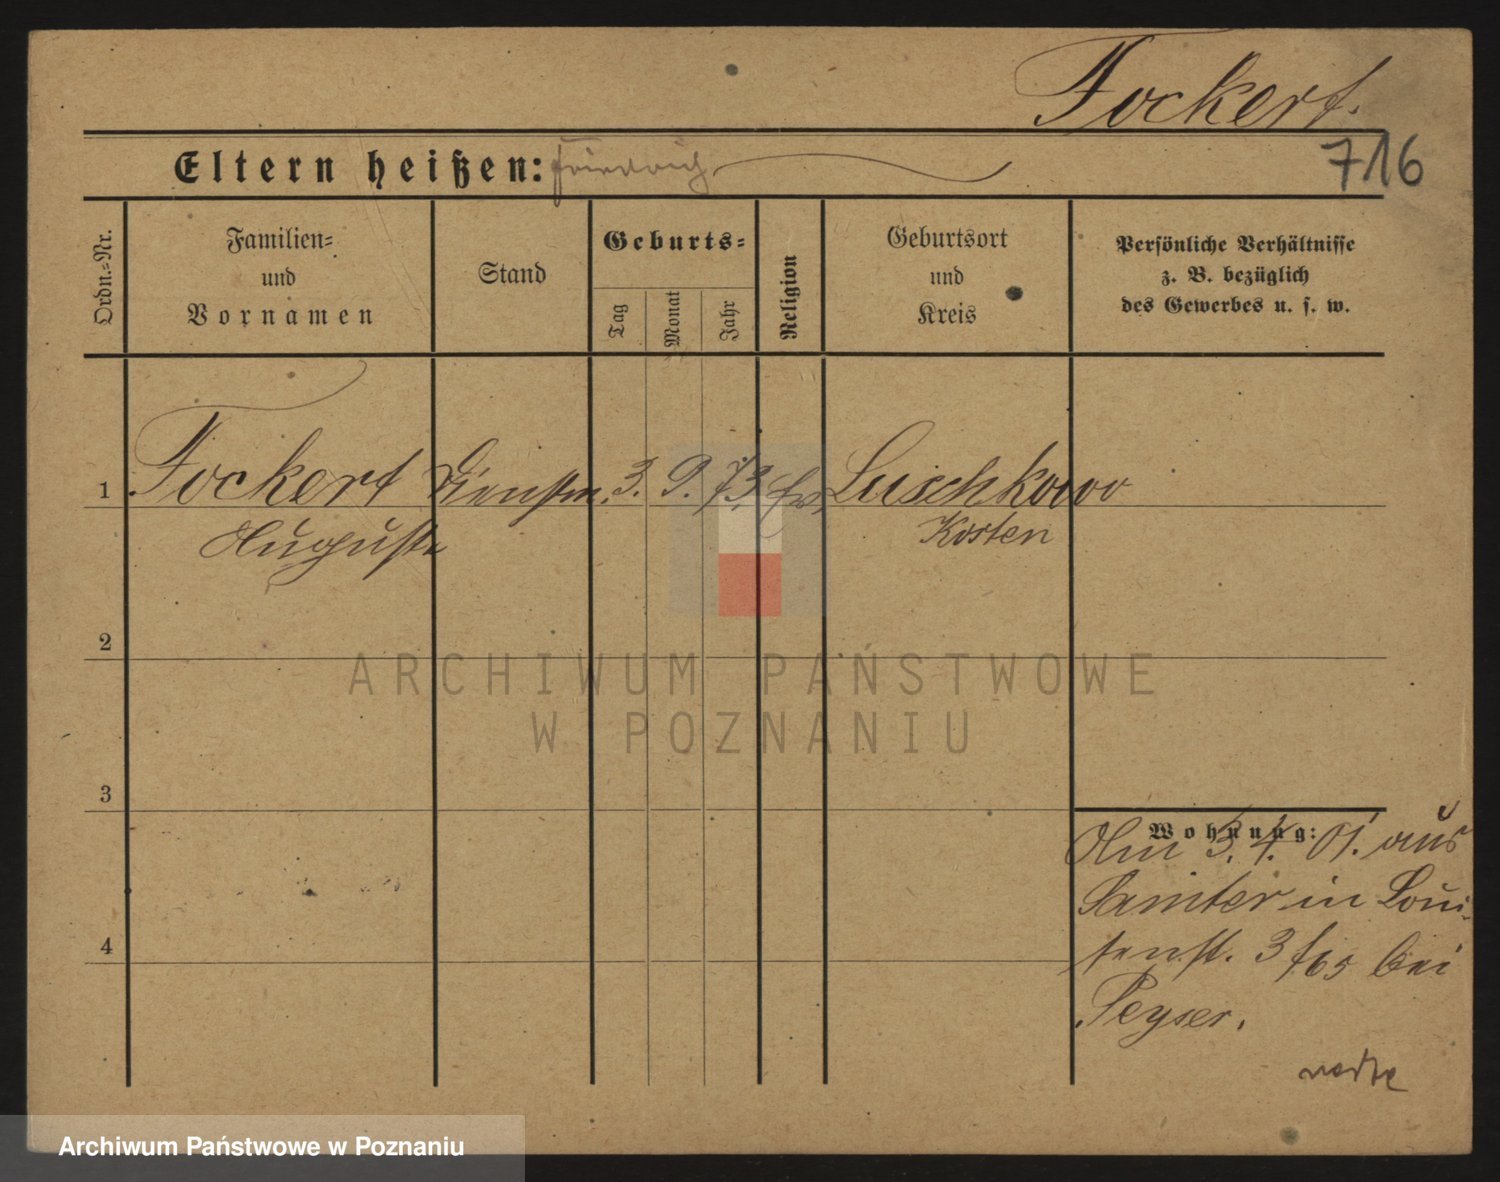 Fockert.
Eltern heißen: Friedrich
716
Ordn.-Nr.
Familien-
und
Vornamen
Stand
Geburts-
Tag
Monat
Jahr
Religion
Geburtsort
und
Kreis
Persönliche Verhältnisse
z. B. bezüglich
des Gewerbes u. s. w.
1 Fockert Dienstm. 3. 9. 73. ev. Luschkowo
Auguste Kosten
2
ARCHIWUM PAŃSTWOWE
W POZNANIU
3
Wohnung:
Am 3. 4. 01. aus
Samter in Loui-
senst. 3 f/65 bei
4
Peyser.
Archiwum Państwowe w Poznaniu